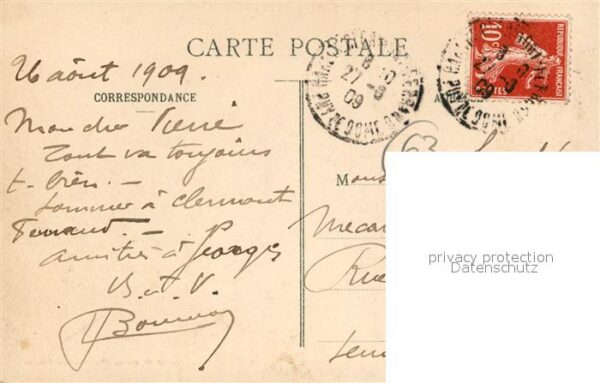 CARTE POSTALE
26 août 1909.
CORRESPONDANCE
Mon cher Pierre
Tout va toujours
t. bien. —
sommes à Clermont
Ferrand. —
amitiés à Georges
B. t. V.
REPUBLIQUE FRANÇAISE
10c
POSTES
GARE
27 -8
09
PUY DE DOME
63
M
Mecan
Rue
privacy protection
Datenschutz